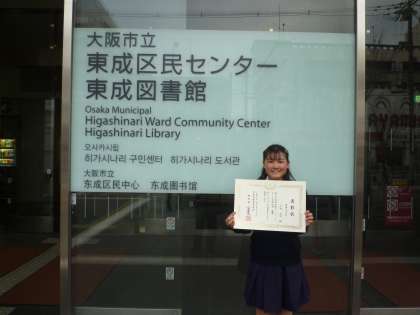 大阪市立
東成区民センター
東成図書館
Osaka Municipal
Higashinari Ward Community Center
Higashinari Library
오사카시립
히가시나리 구민센터 히가시나리 도서관
大阪市立
东成区民中心 东成图书馆
表彰状